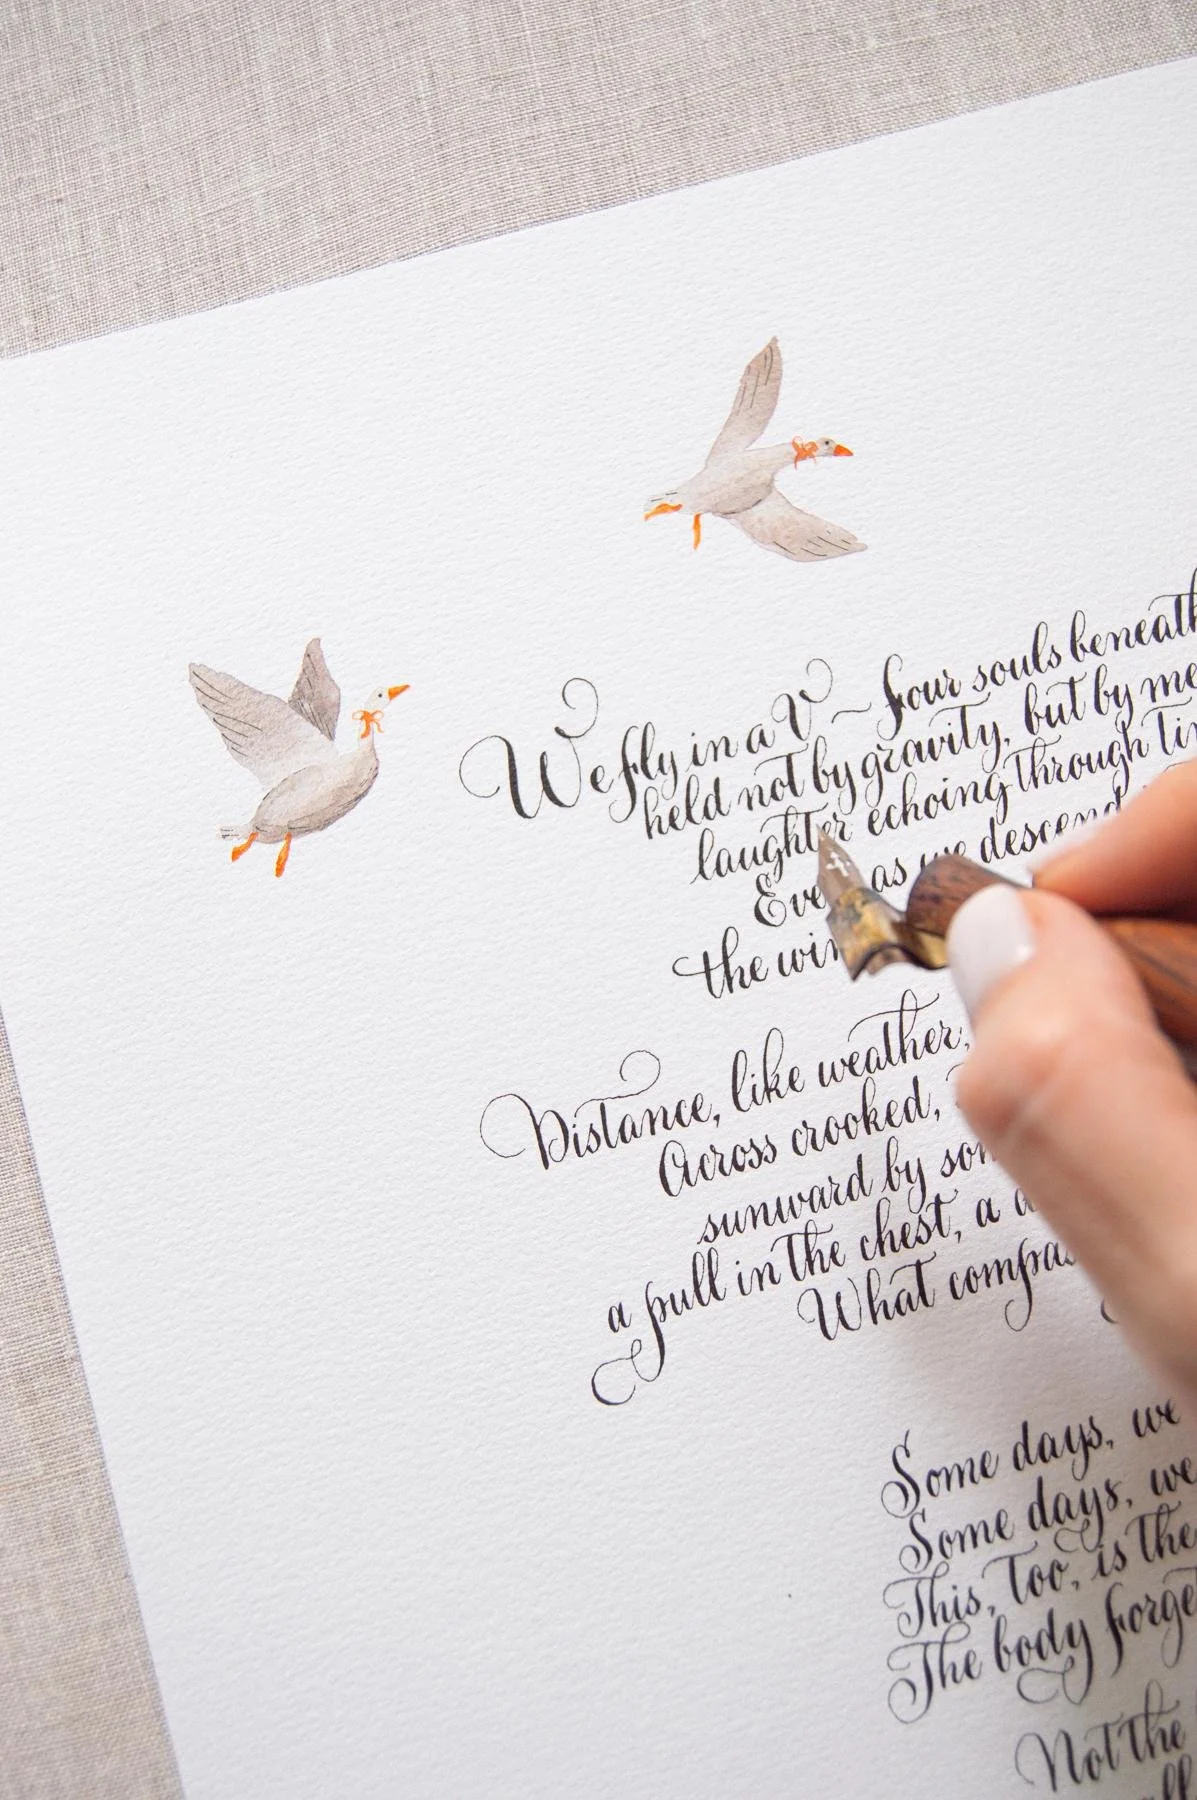 We fly in a V ~ four souls beneath
held not by gravity, but by
laughter echoing through
as we descend
the
Distance, like weather,
Across crooked,
sunward by
a pull in the chest, a
What
Some days, we
Some days, we
This, too, is the
The body
Not the